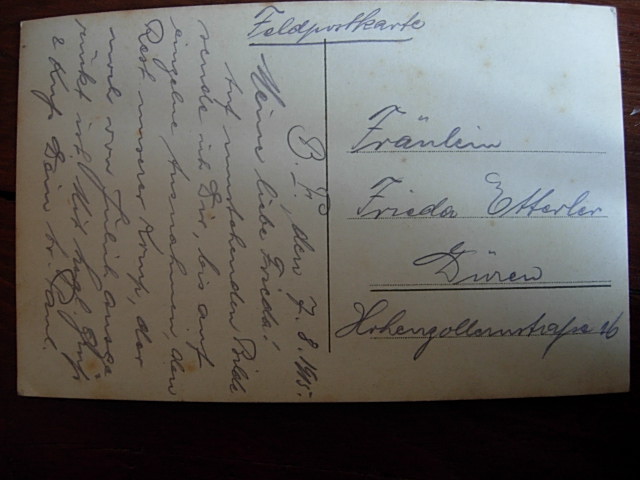 Feldpostkarte
B. F., den 7. 8. 1915.
Meine liebe Frieda!
Auf umstehendem Bilde
sende ich Dir, bis auf
einzelne Ausnahmen, den
Rest unserer Komp., der
mal von Jülich ausge
rückt ist. Mit herzl. Gruß
& Kuß Dein tr. Paul.
Fräulein
Frieda Etterler
Düren
Hohenzollernstraße